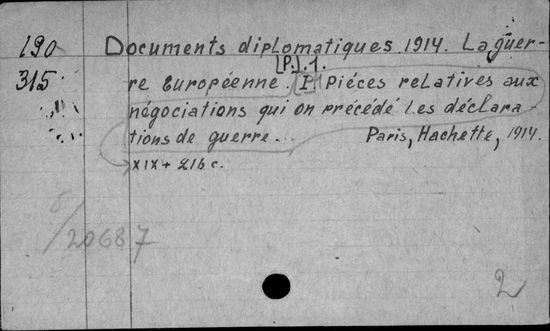 190 Documents diplomatiques 1914. La guer-
[P.].1.
315 re Européenne. [I.] Piéces relatives aux
négociations qui on précédé les déclara-
tions de guerre... Paris, Hachette, 1914.
XIX + 216 c.
б/20687
2